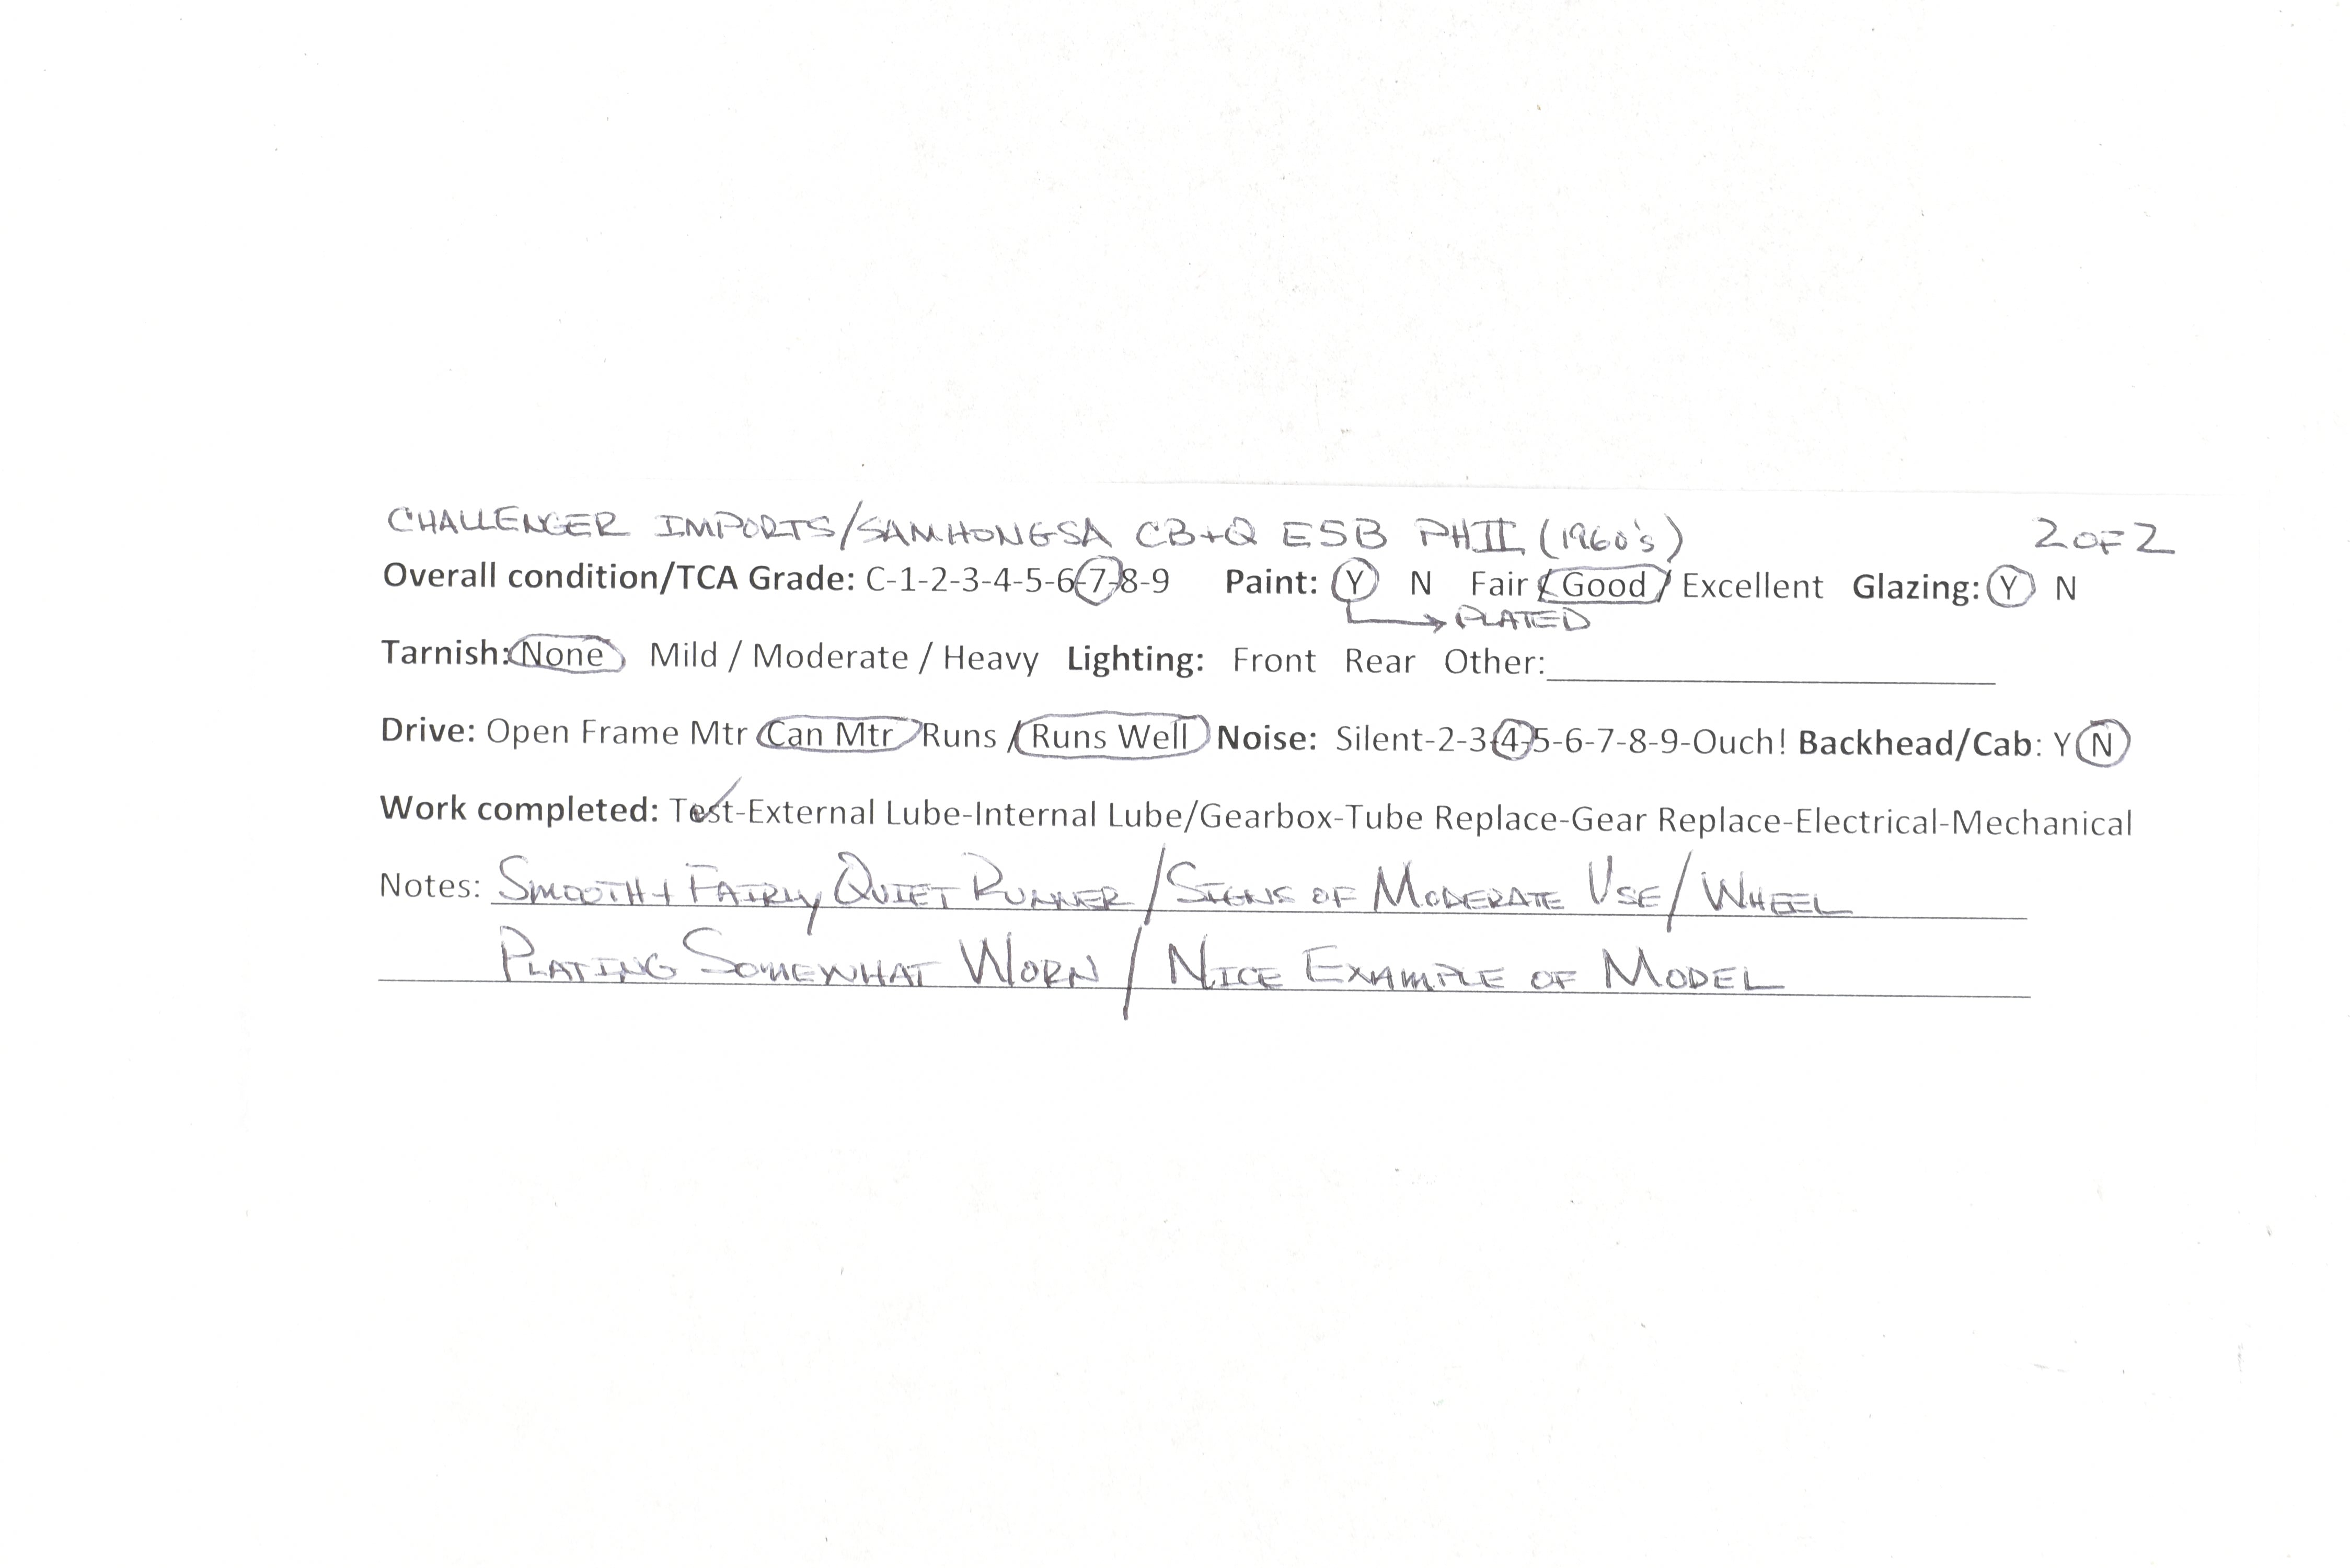 CHALLENGER IMPORTS/SAMHONGSA CB+Q E5B PHII (1960's) 2 OF 2
Overall condition/TCA Grade: C-1-2-3-4-5-6-7-8-9 Paint: Y N Fair / Good / Excellent Glazing: Y N
PLATED
Tarnish: None Mild / Moderate / Heavy Lighting: Front Rear Other:
Drive: Open Frame Mtr Can Mtr Runs / Runs Well Noise: Silent-2-3-4-5-6-7-8-9-Ouch! Backhead/Cab: Y N
Work completed: Test-External Lube-Internal Lube/Gearbox-Tube Replace-Gear Replace-Electrical-Mechanical
Notes: SMOOTH + FAIRLY QUIET RUNNER / SIGNS OF MODERATE USE / WHEEL
PLATING SOMEWHAT WORN / NICE EXAMPLE OF MODEL